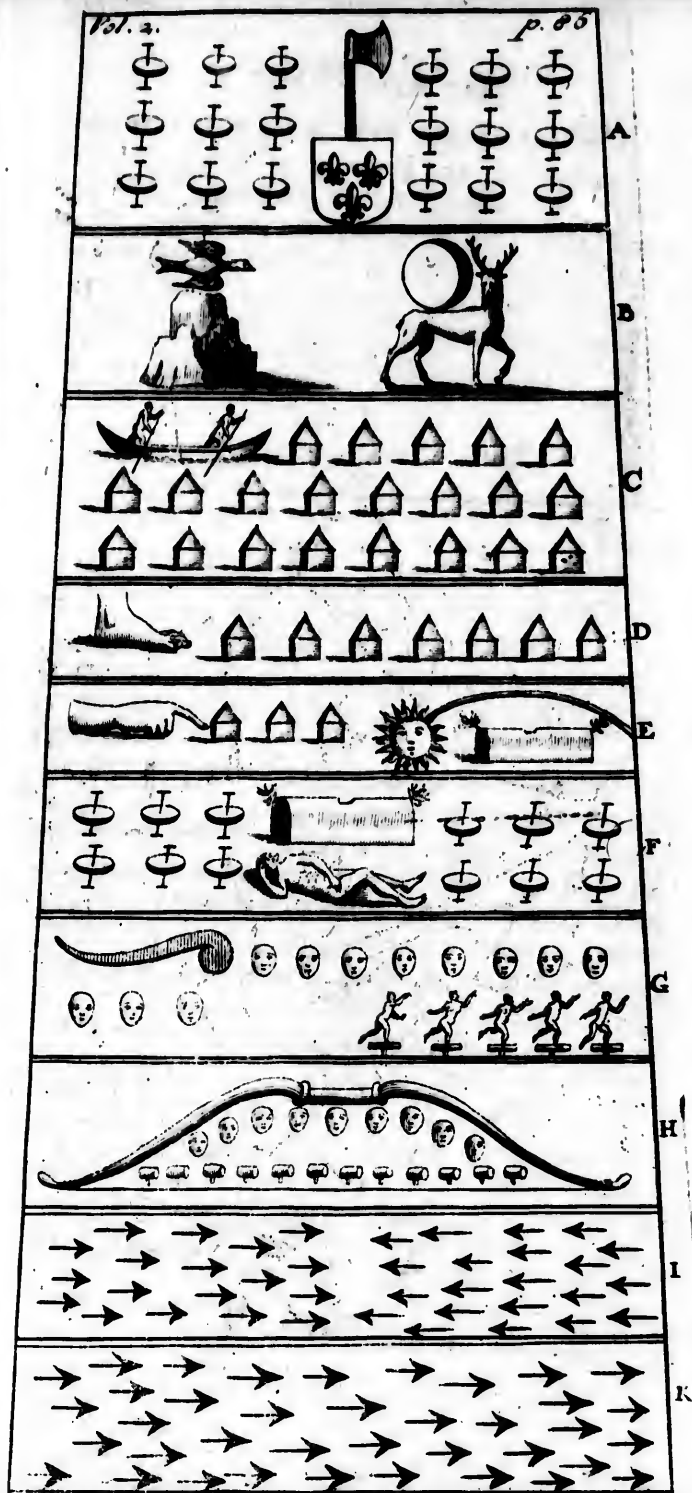 Vol. 2. p. 86
A
B
C
D
E
F
G
H
I
K